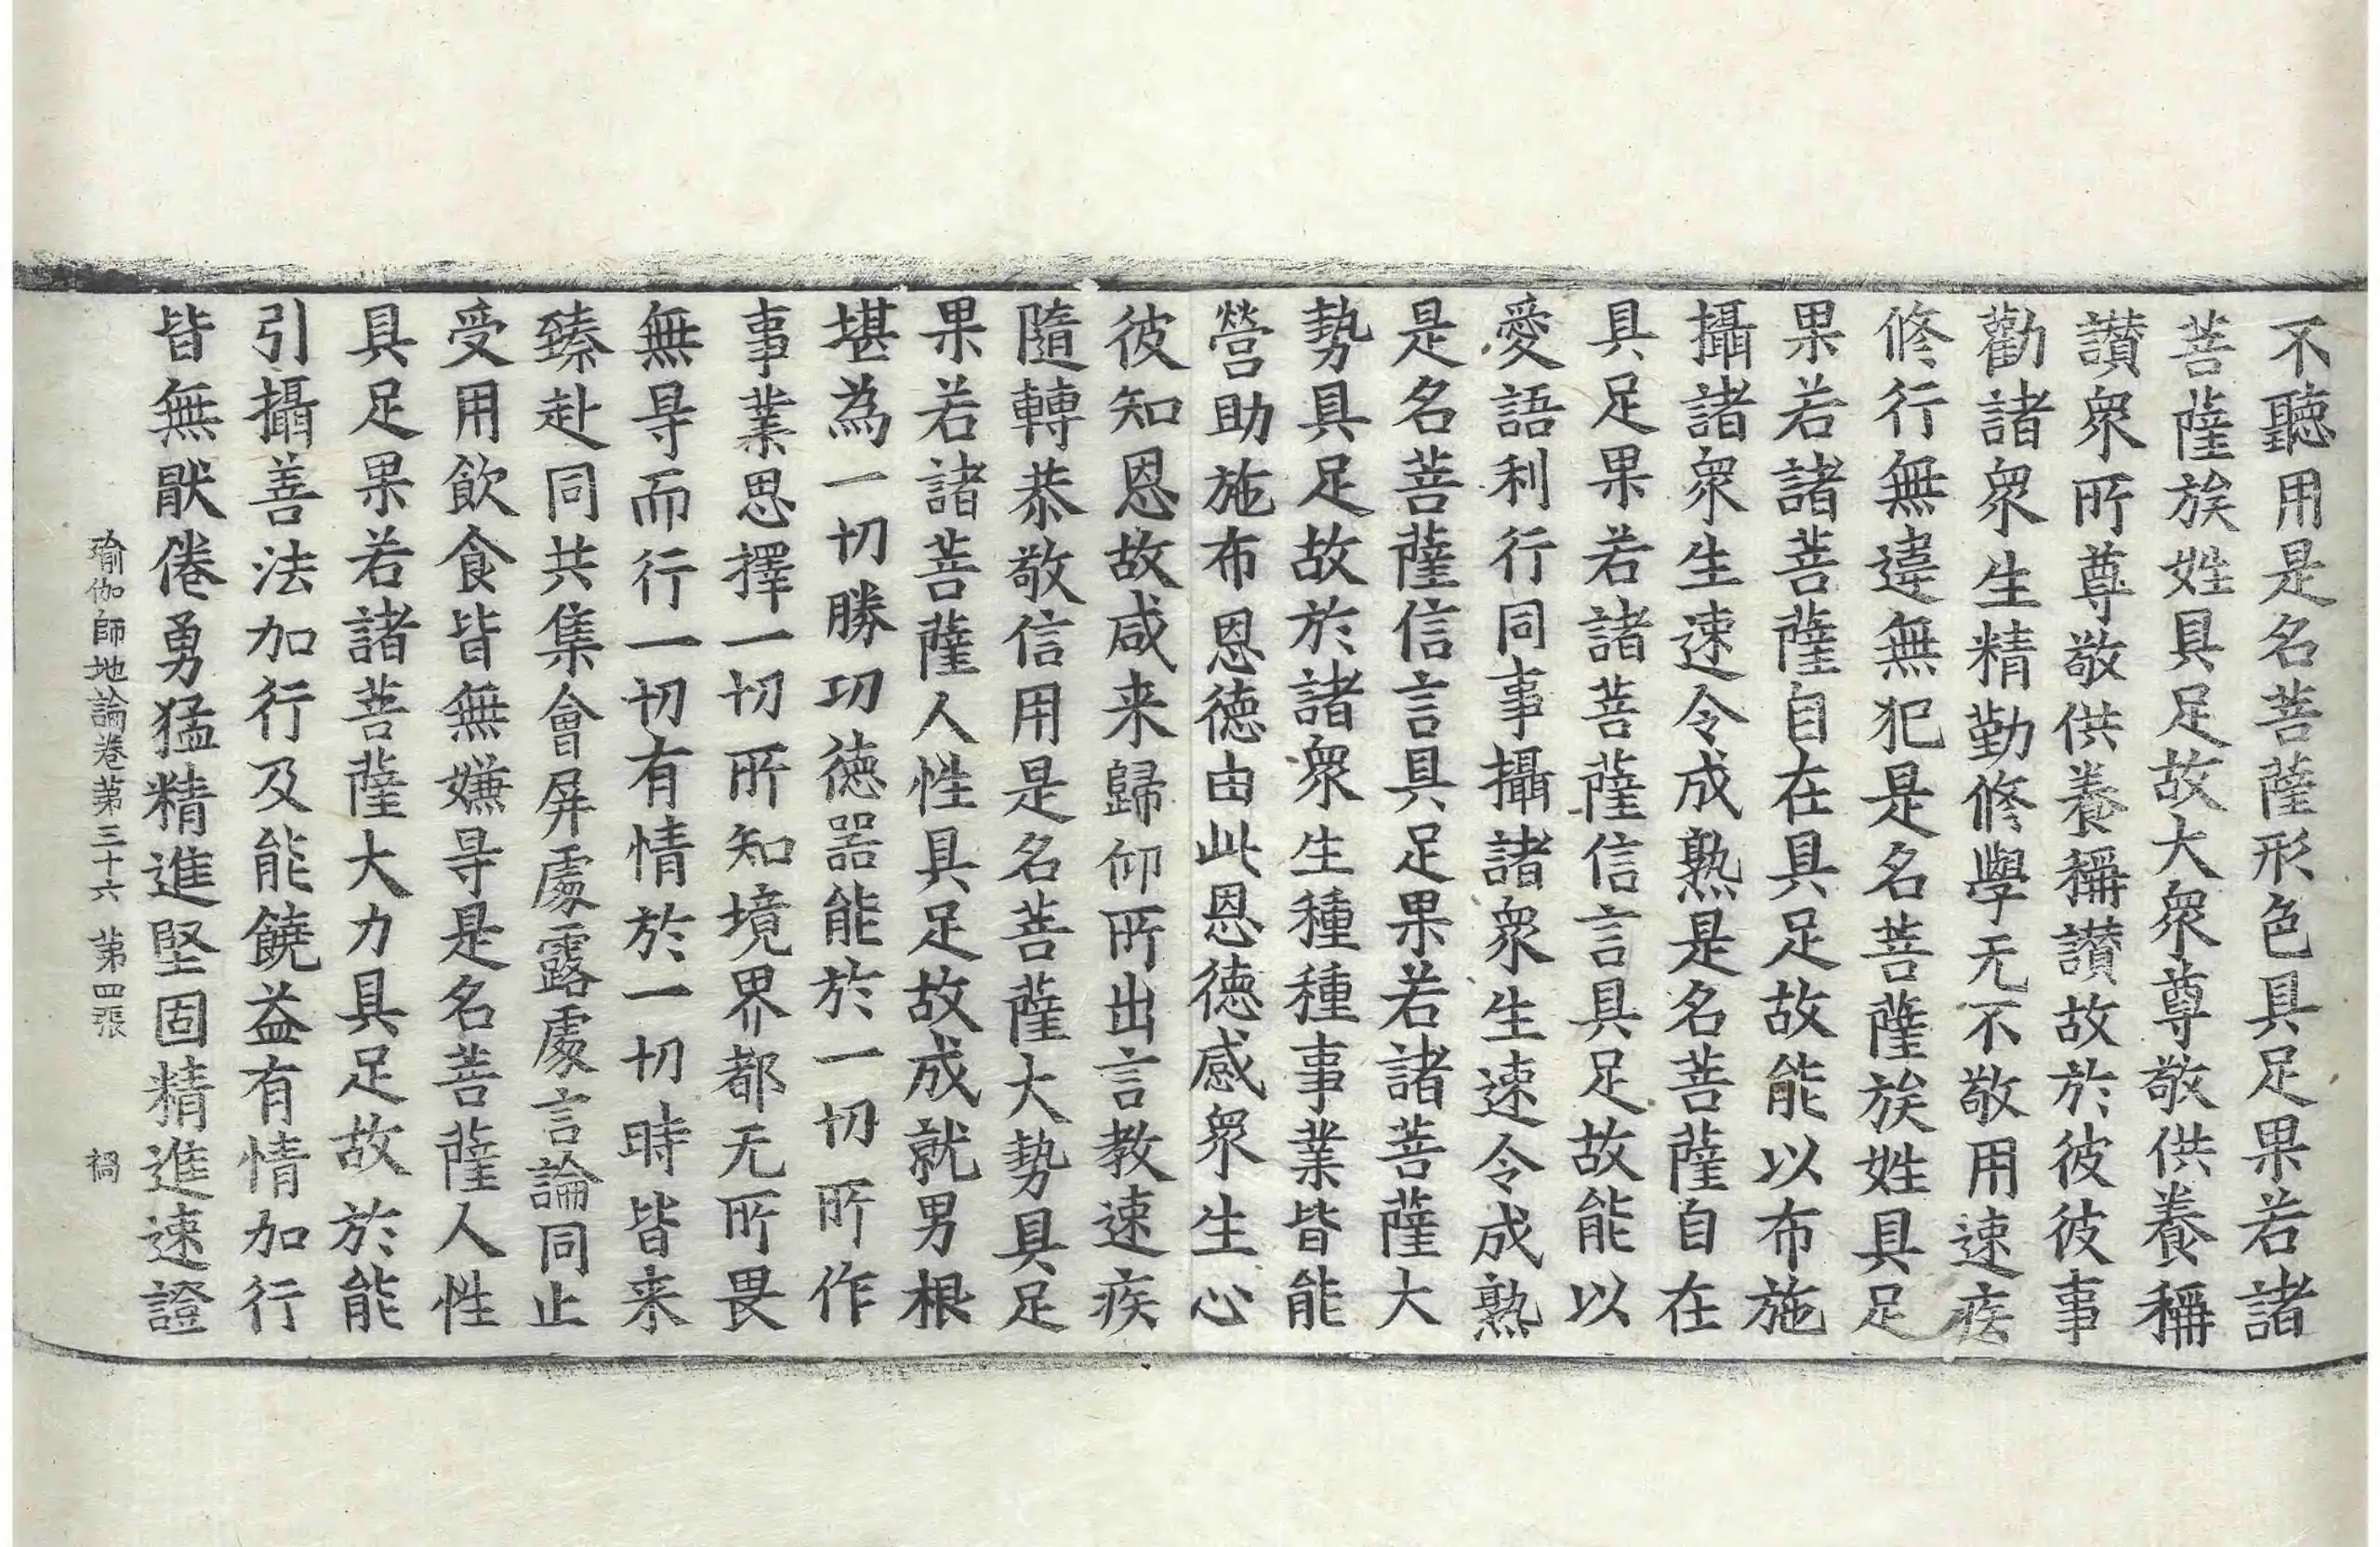 不聽用是名菩薩形色具足果若諸
菩薩族姓具足故大衆尊敬供養稱
讃衆所尊敬供養稱讃故於彼彼事
勸諸衆生精勤修學无不敬用速疾
修行無違無犯是名菩薩族姓具足
果若諸菩薩自在具足故能以布施
攝諸衆生速令成熟是名菩薩自在
具足果若諸菩薩信言具足故能以
愛語利行同事攝諸衆生速令成熟
是名菩薩信言具足果若諸菩薩大
勢具足故於諸衆生種種事業皆能
營助施布恩徳由此恩徳感衆生心
彼知恩故咸来歸仰所出言教速疾
隨轉恭敬信用是名菩薩大勢具足
果若諸菩薩人性具足故成就男根
堪為一切勝功徳器能於一切所作
事業思擇一切所知境界都无所畏
無㝵而行一切有情於一切時皆来
臻赴同共集會屏處露處言論同止
受用飲食皆無嫌㝵是名菩薩人性
具足果若諸菩薩大力具足故於能
引攝善法加行及能饒益有情加行
皆無猒倦勇猛精進堅固精進速證
瑜伽師地論卷苐三十六 苐四張 禍